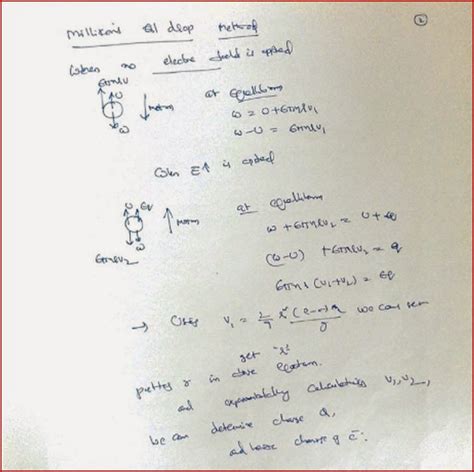 Millikan's oil drop method
②
when no electric field is applied
6πηrv
U
↓ motion
W
at equilibrium
W = U + 6πηrv₁
W - U = 6πηrv₁
when E↑ is applied
U Eq
↑ motion
W
6πηrv₂
at equilibrium
W + 6πηrv₂ = U + Eq
(W-U) + 6πηrv₂ = q
6πηr (v₁+v₂) = Eq
→ Using v₁ = 2/9 r² g we can
get 'r'
putting r in above equation.
and experimentally calculating v₁, v₂,
we can determine charge Q,
and hence charge of e⁻.